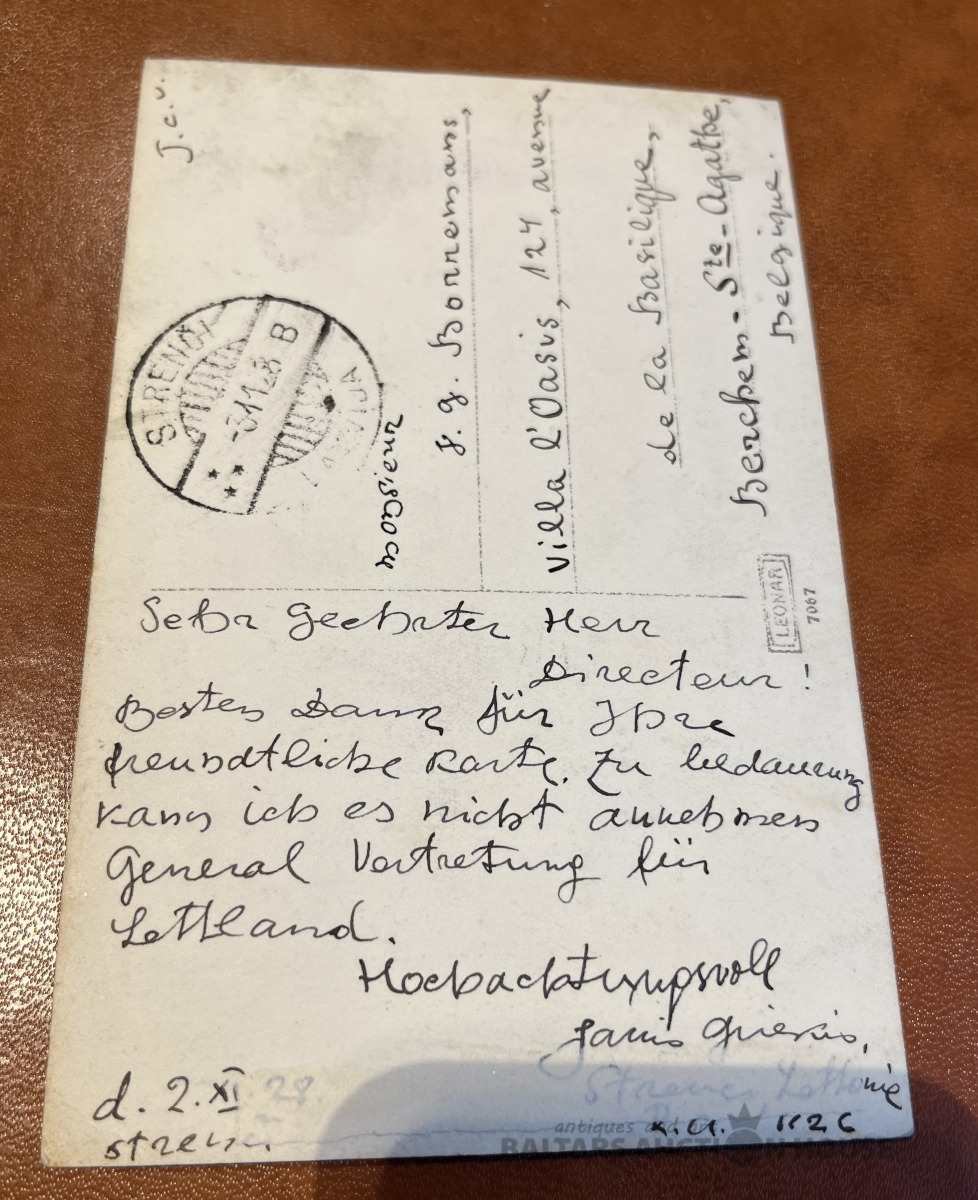 Sehr geehrter Herr
Directeur!
Besten Dank für Ihre
freundtliche Karte. Zu bedauerung
kann ich es nicht annehmen
General Vertretung für
Lettland.
Hochachtungsvoll
Janis
d. 2. XI. 28.
Strenci Lettonie
J. c. v.
STRENČI
-3.11.28 B
LATVIJA
Monsieur
J. G. Bornemans,
Villa l'Oasis, 124, avenue
de la Basilique,
Berchem-Ste-Agathe,
Belgique.
LEONAR
7067
antiques
BALTARS AUCTION HOUSE